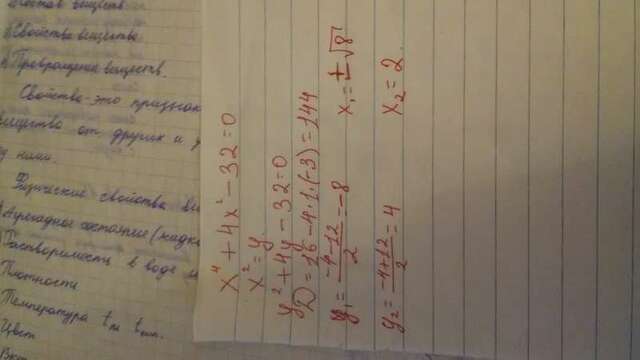 Состав веществ
Свойства вещества
Превращения веществ.
Свойства - это признак
вещества от других и
ними.
Физические свойства
Агрегатное состояние (жидк
Растворимость в воде
Плотности
Температура t пл t кип.
Цвет
x⁴ + 4x² - 32 = 0
x² = y
y² + 4y - 32 = 0
D = 16 - 4·1·(-3) = 144
y₁ = (-4-12)/2 = -8 x₁ = ±√8
y₂ = (-4+12)/2 = 4 x₂ = 2.